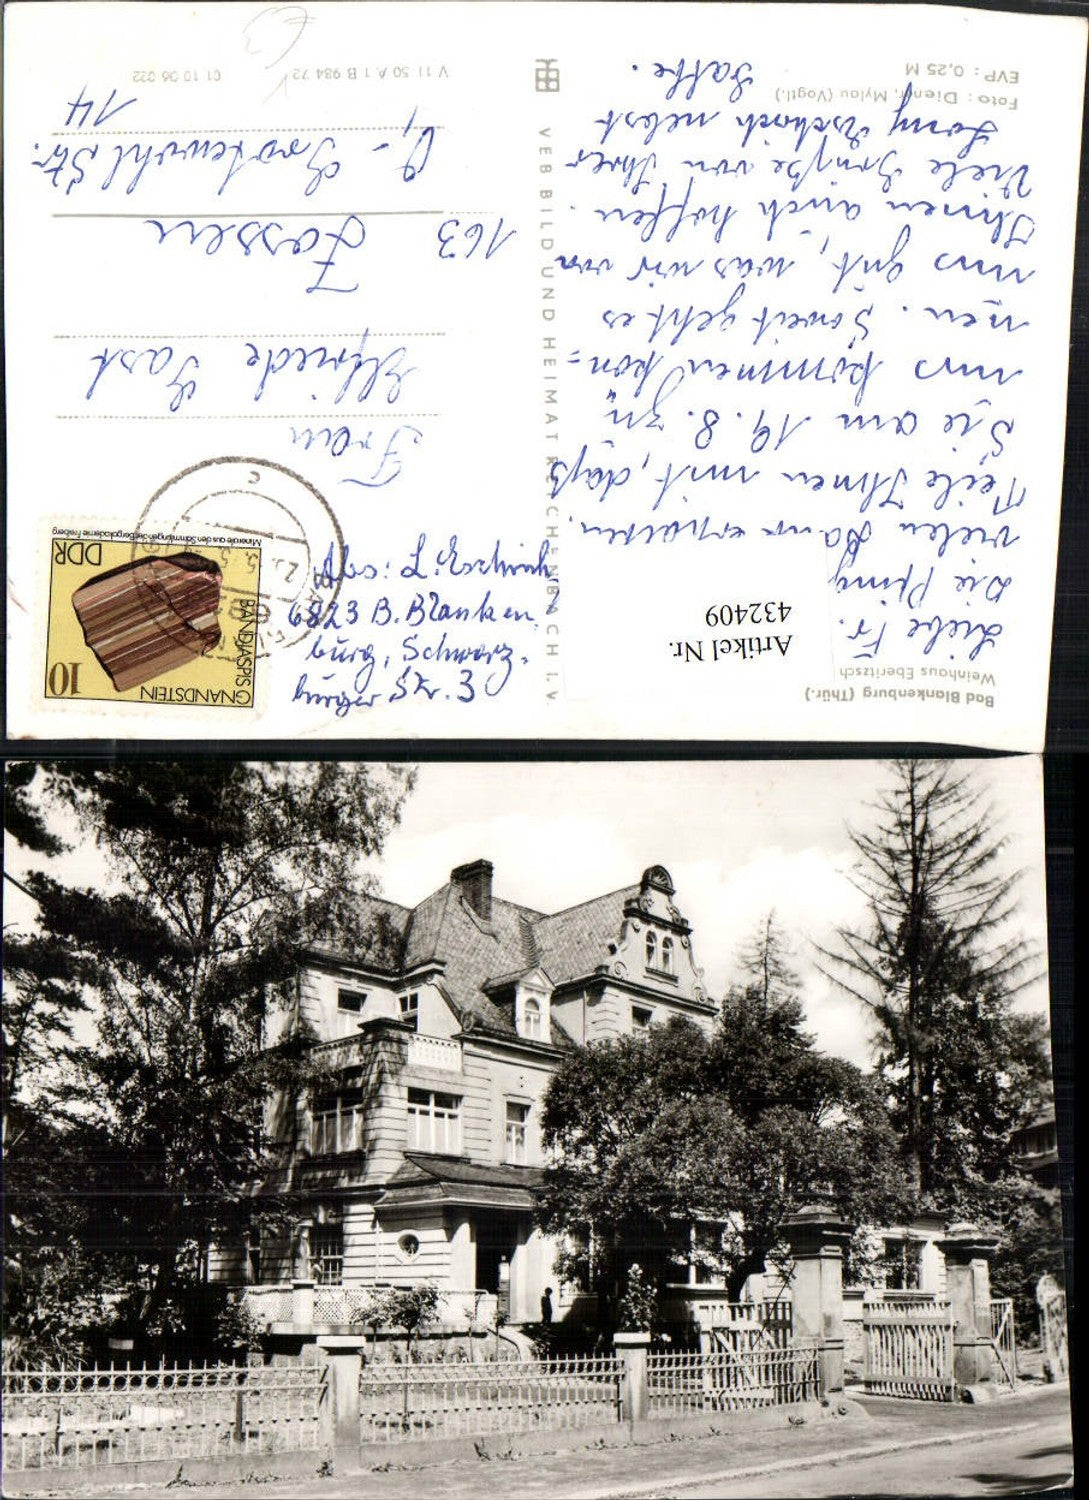 Bad Blankenburg (Thür.)
Weinhaus Eberitzsch
Artikel Nr.
432409
Liebe Fr.
vielen Dank erhalten.
Teile Ihnen mit, daß
Sie am 19. 8. zu
uns kommen kön=
nen. Soweit geht es
uns gut, was wir von
Ihnen auch hoffen.
Viele Grüße von Ihrer
nebst
Gatte.
Foto: Diener, Mylau (Vogtl.)
EVP: 0,25 M
VEB BILD UND HEIMAT REICHENBACH I. V.
V 11 50 A 1 B 984 72
01 10 06 022
DDR
Minerale aus den Sammlungen der Bergakademie Freiberg
BANDJASPIS
GNANDSTEIN
10
Abs: L.
6823 B. Blanken
burg, Schwarz-
burger Str.
Frau
Elfriede Gast
163 Zossen
O.- Grotewohl Str.
14